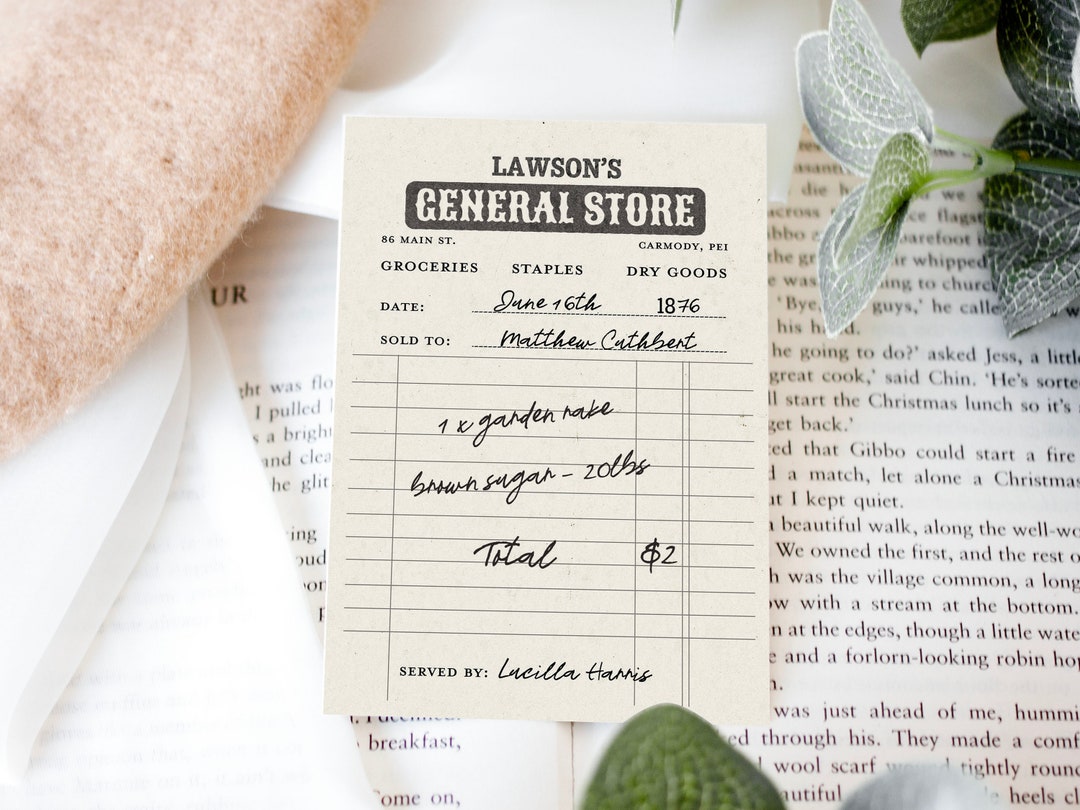 LAWSON'S
GENERAL STORE
86 MAIN ST. CARMODY, PEI
GROCERIES STAPLES DRY GOODS
DATE: June 16th 1876
SOLD TO: Matthew Cuthbert
1 x garden rake
brown sugar - 20lbs
Total $2
SERVED BY: Lucilla Harris
UR
ght was flo
I pulled
s a bright
and clea
he glit
ing
breakfast,
'Come on,
die h
we s
across
ce flags
bbo
barefoot i
the gr
ir whipped
it was
ng to church
'Bye
guys,' he calle
his ha
he going to do?' asked Jess, a little
great cook,' said Chin. 'He's sorte
ll start the Christmas lunch so it's
get back.'
ted that Gibbo could start a fire
d a match, let alone a Christmas
ut I kept quiet.
a beautiful walk, along the well-wo
We owned the first, and the rest o
h was the village common, a long
ow with a stream at the bottom.
n at the edges, though a little wate
e and a forlorn-looking robin hop
was just ahead of me, hummi
ed through his. They made a comf
wool scarf wound tightly round
autiful heels cl